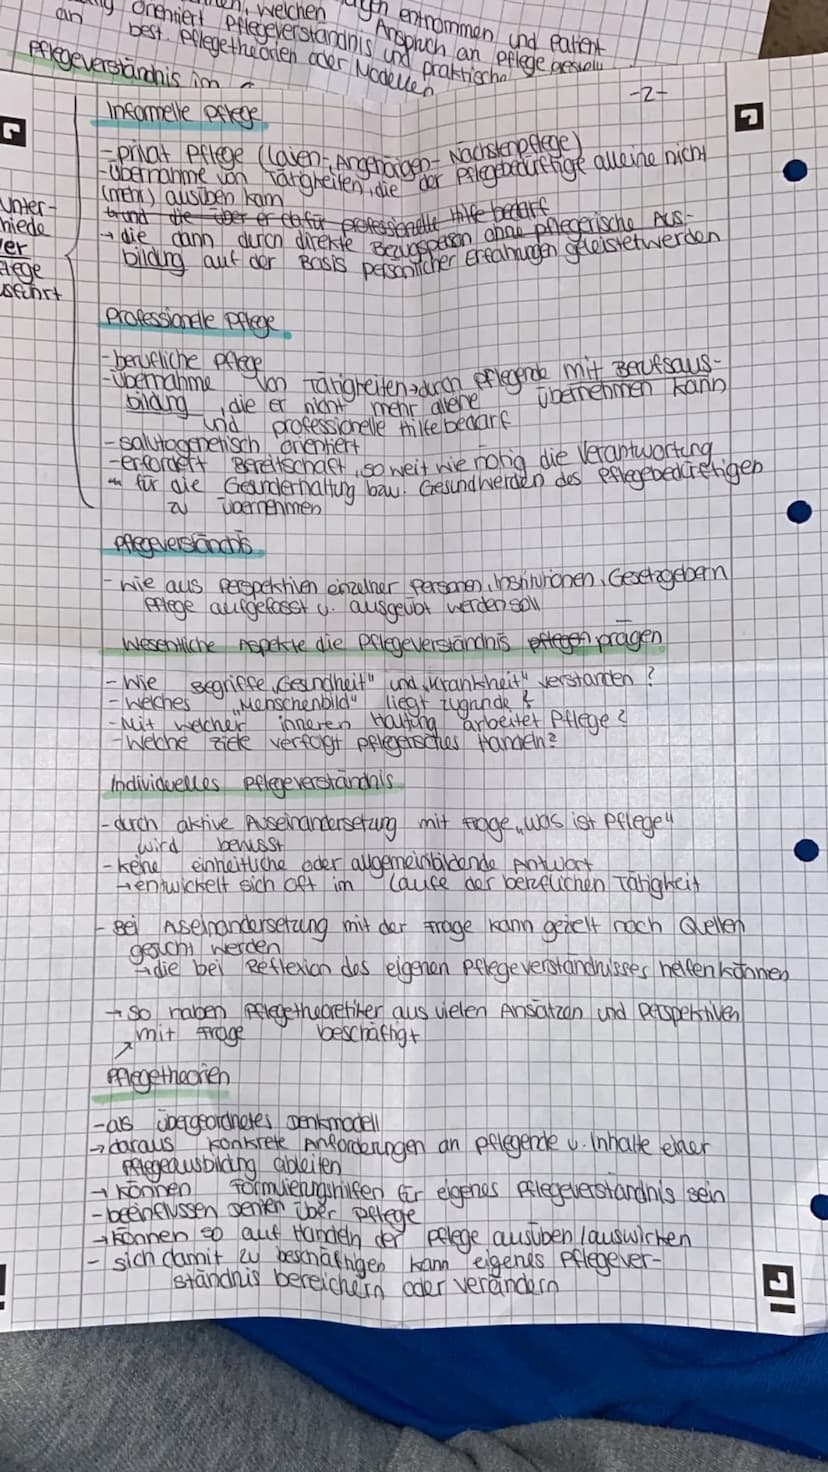 orientiert, welchen
Pflegeverständnis und
an
best. Pflegetheorien oder Modellen
entnommen und Patient
Anspruch an Pflege
praktische
Pflegeverständnis im
-2-
Informelle Pflege
- privat Pflege (Laien-, Angehörigen- Nächstenpflege)
- Übernahme von Tätigkeiten, die der Pflegebedürftige alleine nicht
(mehr) ausüben kann
und die über er dafür professionelle Hilfe bedarf
→ die dann durch direkte Bezugsperson ohne pflegerische Aus-
bildung auf der Basis persönlicher Erfahrungen geleistet werden
Unter-
hiede
er
flege
sführt
Professionelle Pflege
- berufliche Pflege
- Übernahme von Tätigkeiten → durch pflegende mit Berufsaus-
bildung, die er nicht mehr alleine übernehmen kann
und professionelle Hilfe bedarf
- salutogenetisch orientiert
- erfordert Bereitschaft, so weit wie nötig die Verantwortung
für die Gesunderhaltung bzw. Gesundwerden des Pflegebedürftigen
zu übernehmen
Pflegeverständnis
- wie aus Perspektiven einzelner Personen, Institutionen, Gesetzgebern
Pflege aufgefasst u. ausgeübt werden soll
Wesentliche Aspekte die Pflegeverständnis pflegen prägen
- Wie Begriffe „Gesundheit" und „Krankheit" verstanden?
- Welches „Menschenbild" liegt zugrunde?
- Mit welcher inneren Haltung arbeitet Pflege?
- Welche Ziele verfolgt pflegerisches Handeln?
Individuelles Pflegeverständnis
- durch aktive Auseinandersetzung mit Frage „Was ist Pflege"
wird bewusst
- keine einheitliche oder allgemeinbildende Antwort
→ entwickelt sich oft im Laufe der beruflichen Tätigkeit
- Bei Aseinandersetzung mit der Frage kann gezielt nach Quellen
gesucht werden
→ die bei Reflexion des eigenen Pflegeverständnisses helfen können
→ So haben Pflegetheoretiker aus vielen Ansätzen und Perspektiven
mit Frage beschäftigt
Pflegetheorien
- als übergeordnetes Denkmodell
→ daraus konkrete Anforderungen an pflegende u. Inhalte einer
Pflegeausbildung ableiten
→ können Formulierungshilfen für eigenes Pflegeverständnis sein
- beeinflussen Denken über Pflege
→ können so auf Handeln der Pflege ausüben / auswirken
- sich damit zu beschäftigen kann eigenes Pflegever-
ständnis bereichern oder verändern